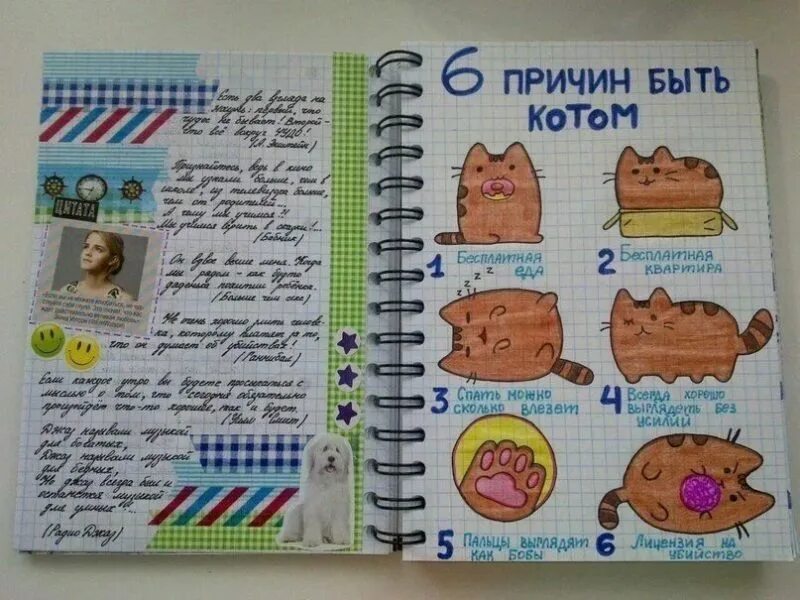 Есть два взгляда на
жизнь: первый, что
чудес не бывает! Второй -
что всё вокруг ЧУДО!
(А. Эйнштейн)
Признайтесь, ведь в кино
мы узнали больше, чем в
школе, из телевизора больше,
чем от родителей...
А чему мы учимся?!
Мы учимся верить в сказки!...
ЦИТАТА
Он вдвое выше меня. Когда
мы рядом - как будто
дяденька похитил ребёнка.
(Больше чем секс)
Не очень хорошо злить челове-
ка, которому платят за то,
что он думает об убийствах!
(Ганнибал)
Если каждое утро вы будете просыпаться с
мыслью о том, что сегодня обязательно
произойдёт что-то хорошее, так и будет.
Джаз называли музыкой
для богатых,
Джаз называли музыкой
для бедных,
Но джаз всегда был и
останется музыкой
для умных!...
(Радио Джаз)
6 ПРИЧИН БЫТЬ
КОТОМ
1 Бесплатная
еда
2 Бесплатная
квартира
z z z
3 Спать можно
сколько влезет
4 Всегда хорошо
выглядеть без
усилий
5 Пальцы выглядят
как бобы
6 Лицензия на
убийство